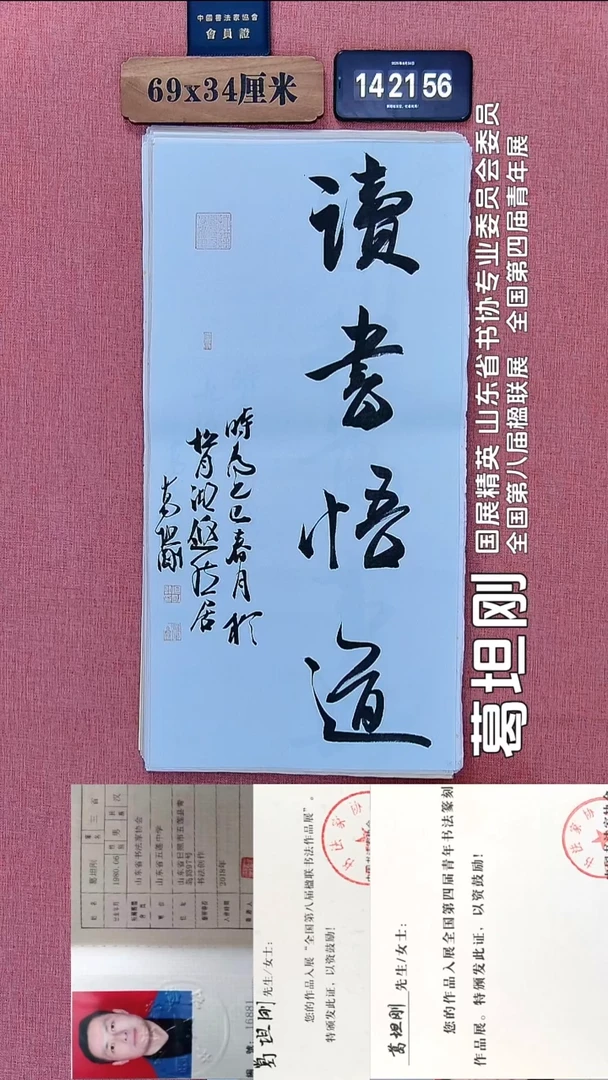 中國書法家協會
會員證
69x34厘米
14 21 56
讀書悟道
時為乙巳春月於
居
葛坦刚
国展精英 山东省书协专业委员会委员
全国第八届楹联展 全国第四届青年展
葛坦刚
葛坦刚
汉
1980.06
山东省书法家协会
山东省五莲中学
书法创作
2018年
16881
葛坦刚 先生/女士:
您的作品入展“全国第八届楹联书法作品展”。
特颁发此证，以资鼓励!
葛坦刚 先生/女士:
您的作品入展全国第四届青年书法篆刻
作品展。特颁发此证，以资鼓励!